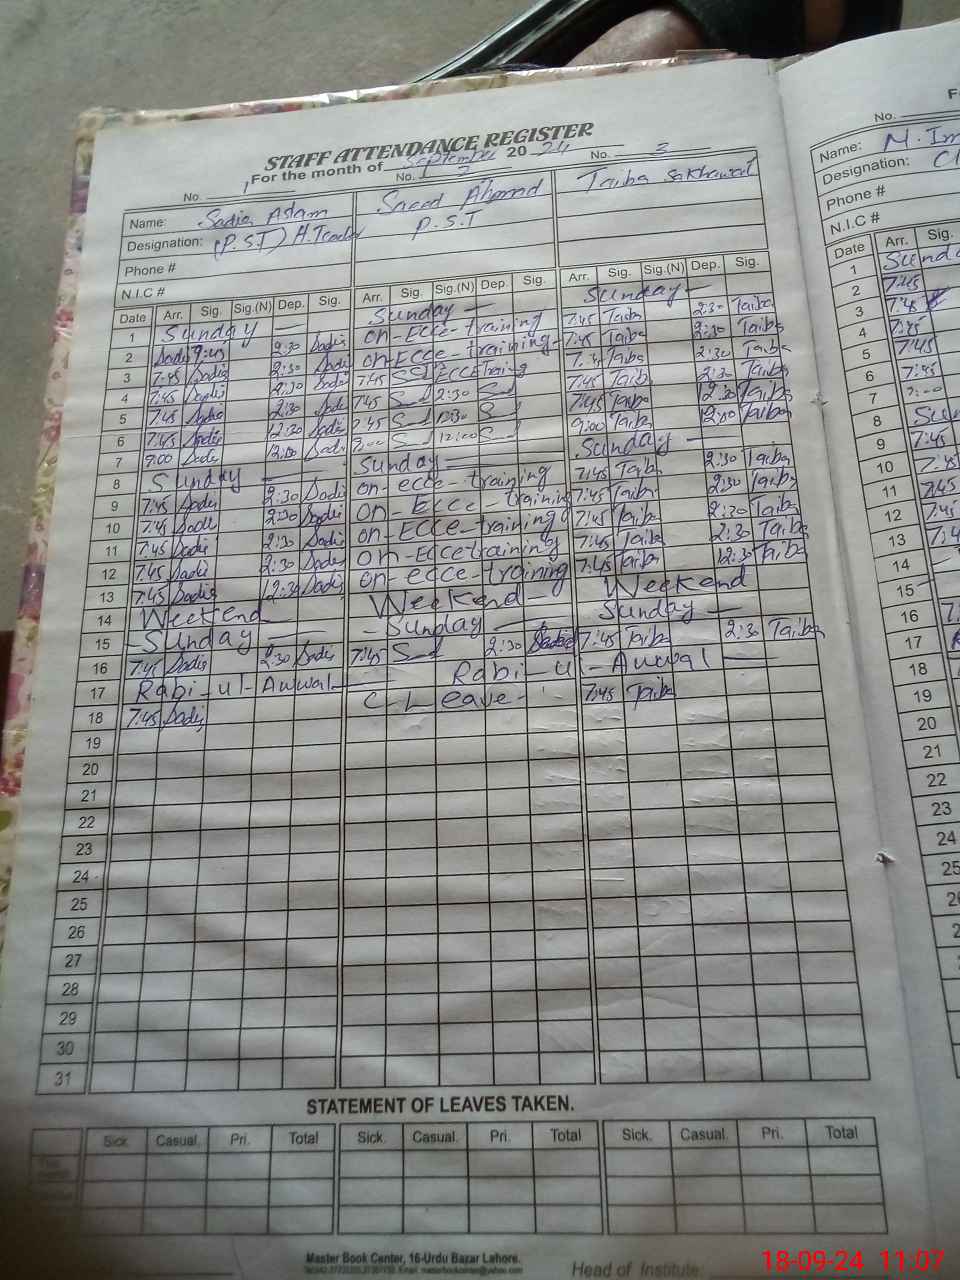 STAFF ATTENDANCE REGISTER
For the month of September 20 24
No. 1 No. 2 No. 3
Name: Sadia Aslam Saeed Ahmad Taiba Sakhawat
Designation: (P.S.T) H.Teacher P.S.T
Phone #
N.I.C #
Date Arr. Sig. Sig.(N) Dep. Sig. Arr. Sig. Sig.(N) Dep. Sig. Arr. Sig. Sig.(N) Dep. Sig.
1 Sunday — Sunday — Sunday —
2 Sadia 7:45 2:30 Sadia on-Ecce-training 7:45 Taiba 2:30 Taiba
3 7:45 Sadia 2:30 Sadia on-Ecce-training- 7:45 Taiba 2:30 Taiba
4 7:45 Sadia 2:30 Sadia 7:45 ECCE training Taiba 2:30 Taiba
5 7:45 Sadia 2:30 Sadia 7:45 2:30 7:45 Taiba 2:30 Taiba
6 7:45 Sadia 12:30 Sadia 7:45 12:30 7:45 Taiba 12:30 Taiba
7 9:00 Sadia 12:00 Sadia 9:00 12:00 9:00 Taiba 12:00 Taiba
8 Sunday — Sunday — Sunday —
9 7:45 Sadia 2:30 Sadia on-ecce-training 7:45 Taiba 2:30 Taiba
10 7:45 Sadia 2:30 Sadia on-Ecce-training 7:45 Taiba 2:30 Taiba
11 7:45 Sadia 2:30 Sadia on-ECCE-training 7:45 Taiba 2:30 Taiba
12 7:45 Sadia 2:30 Sadia on-Eccetraining 7:45 Taiba 2:30 Taiba
13 7:45 Sadia 12:30 Sadia on-ecce-training 7:45 Taiba 12:30 Taiba
14 Weekend Weekend Weekend
15 -Sunday — -Sunday — Sunday —
16 7:45 Sadia 2:30 Sadia 7:45 2:30 7:45 Taiba 2:30 Taiba
17 Rabi-ul-Awwal — Rabi-ul-Awwal —
18 7:45 Sadia C Leave- 7:45 Taiba
19
20
21
22
23
24
25
26
27
28
29
30
31
STATEMENT OF LEAVES TAKEN.
Sick. Casual. Pri. Total Sick. Casual. Pri. Total Sick. Casual. Pri. Total
Master Book Center, 16-Urdu Bazar Lahore.
Head of Institute:
No.
Name: M. Im
Designation:
Phone #
N.I.C #
Date Arr. Sig.
1 Sund
2 7:45
3 7:45
4 7:45
5 7:45
6 7:45
7
8 Sun
9 7:45
10 7:45
11 7:45
12 7:45
13 7:4
14
15
16
17
18
19
20
21
22
23
24
25
18-09-24 11:07